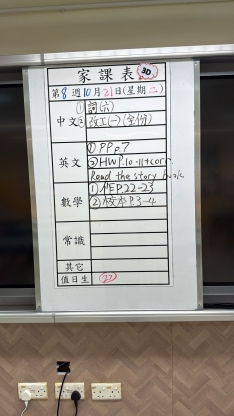 家課表 3D
第8週10月21日(星期二)
中文 ①詞(六)
②改工(一)(全份)
英文 ① PP p.7
② HW P.10-11+corr.
Read the story book
數學 ① 作P.22-23
② 校本P.3-4
常識
其它
值日生 (22)